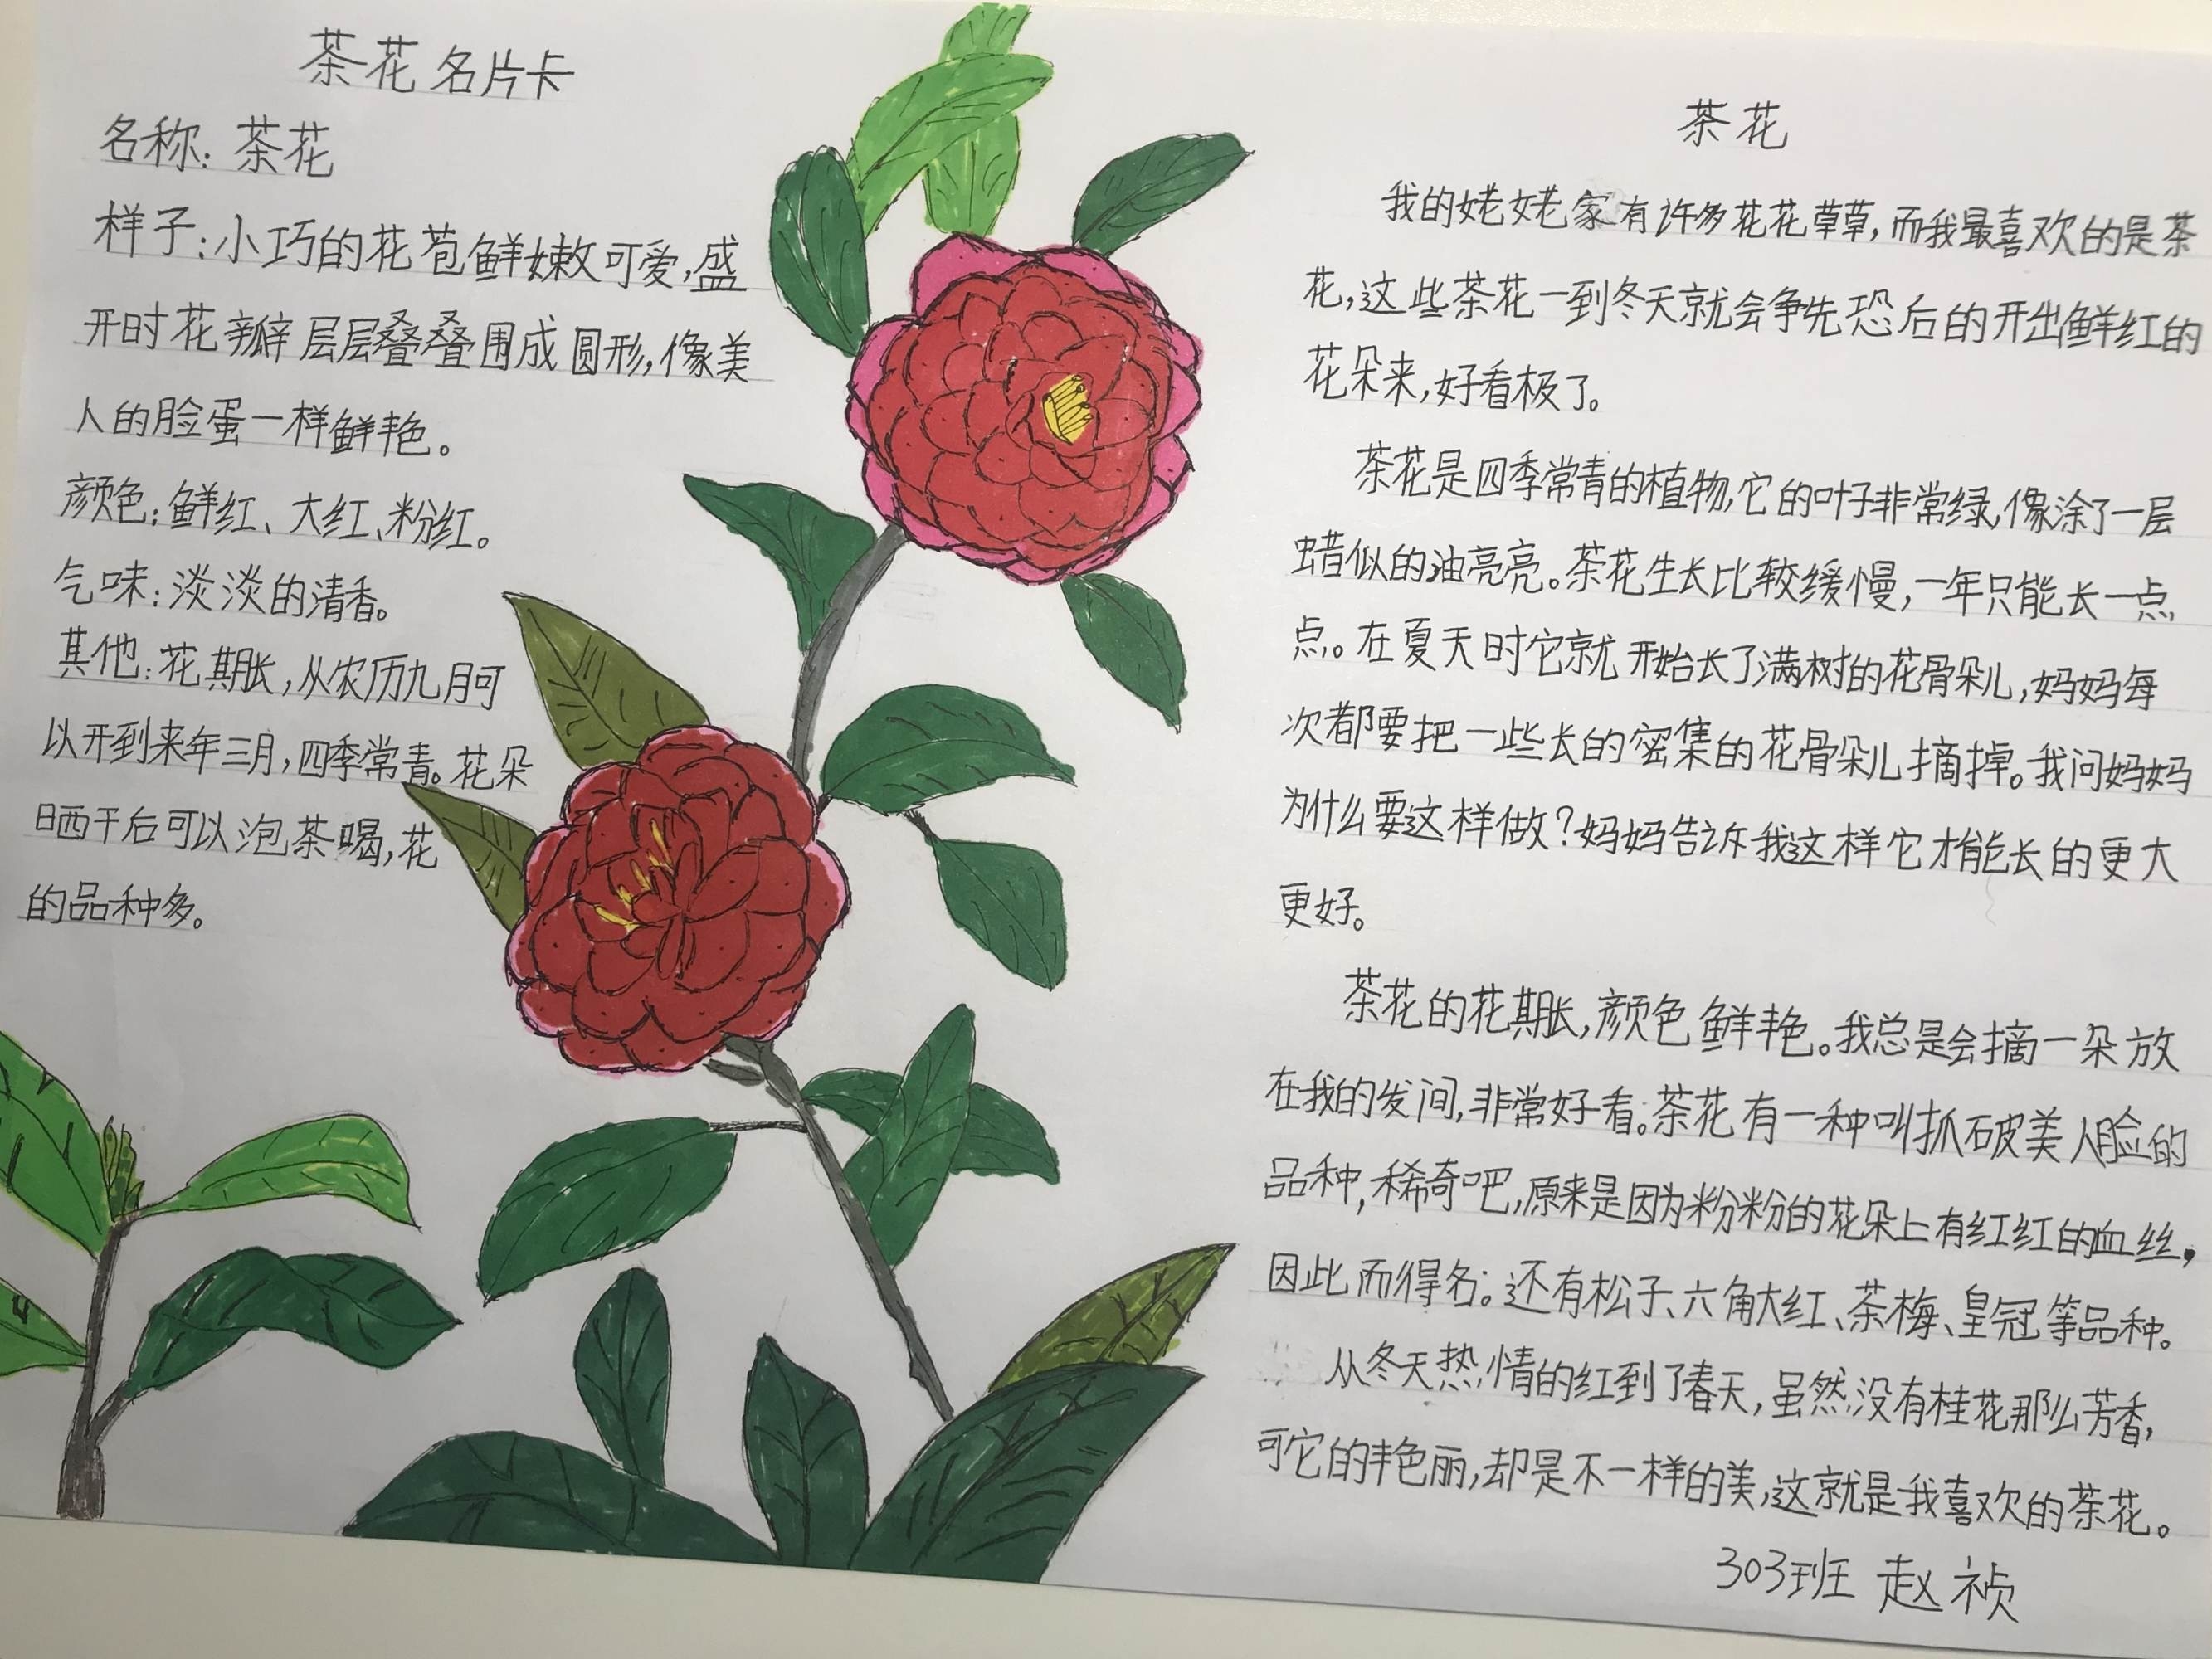 茶花名片卡
名称：茶花
样子：小巧的花苞鲜嫩可爱，盛
开时花瓣层层叠叠围成圆形，像美
人的脸蛋一样鲜艳。
颜色：鲜红、大红、粉红。
气味：淡淡的清香。
其他：花期长，从农历九月可
以开到来年三月，四季常青。花朵
晒干后可以泡茶喝，花
的品种多。
茶花
我的姥姥家有许多花花草草，而我最喜欢的是茶
花，这些茶花一到冬天就会争先恐后的开出鲜红的
花朵来，好看极了。
茶花是四季常青的植物，它的叶子非常绿，像涂了一层
蜡似的油亮亮。茶花生长比较缓慢，一年只能长一点
点。在夏天时它就开始长了满树的花骨朵儿，妈妈每
次都要把一些长的密集的花骨朵儿摘掉。我问妈妈
为什么要这样做？妈妈告诉我这样它才能长的更大
更好。
茶花的花期长，颜色鲜艳。我总是会摘一朵放
在我的发间，非常好看。茶花有一种叫抓破美人脸的
品种，稀奇吧，原来是因为粉粉的花朵上有红红的血丝，
因此而得名。还有松子、六角大红、茶梅、皇冠等品种。
从冬天热情的红到了春天，虽然没有桂花那么芳香，
可它的艳丽，却是不一样的美，这就是我喜欢的茶花。
303班 赵祯